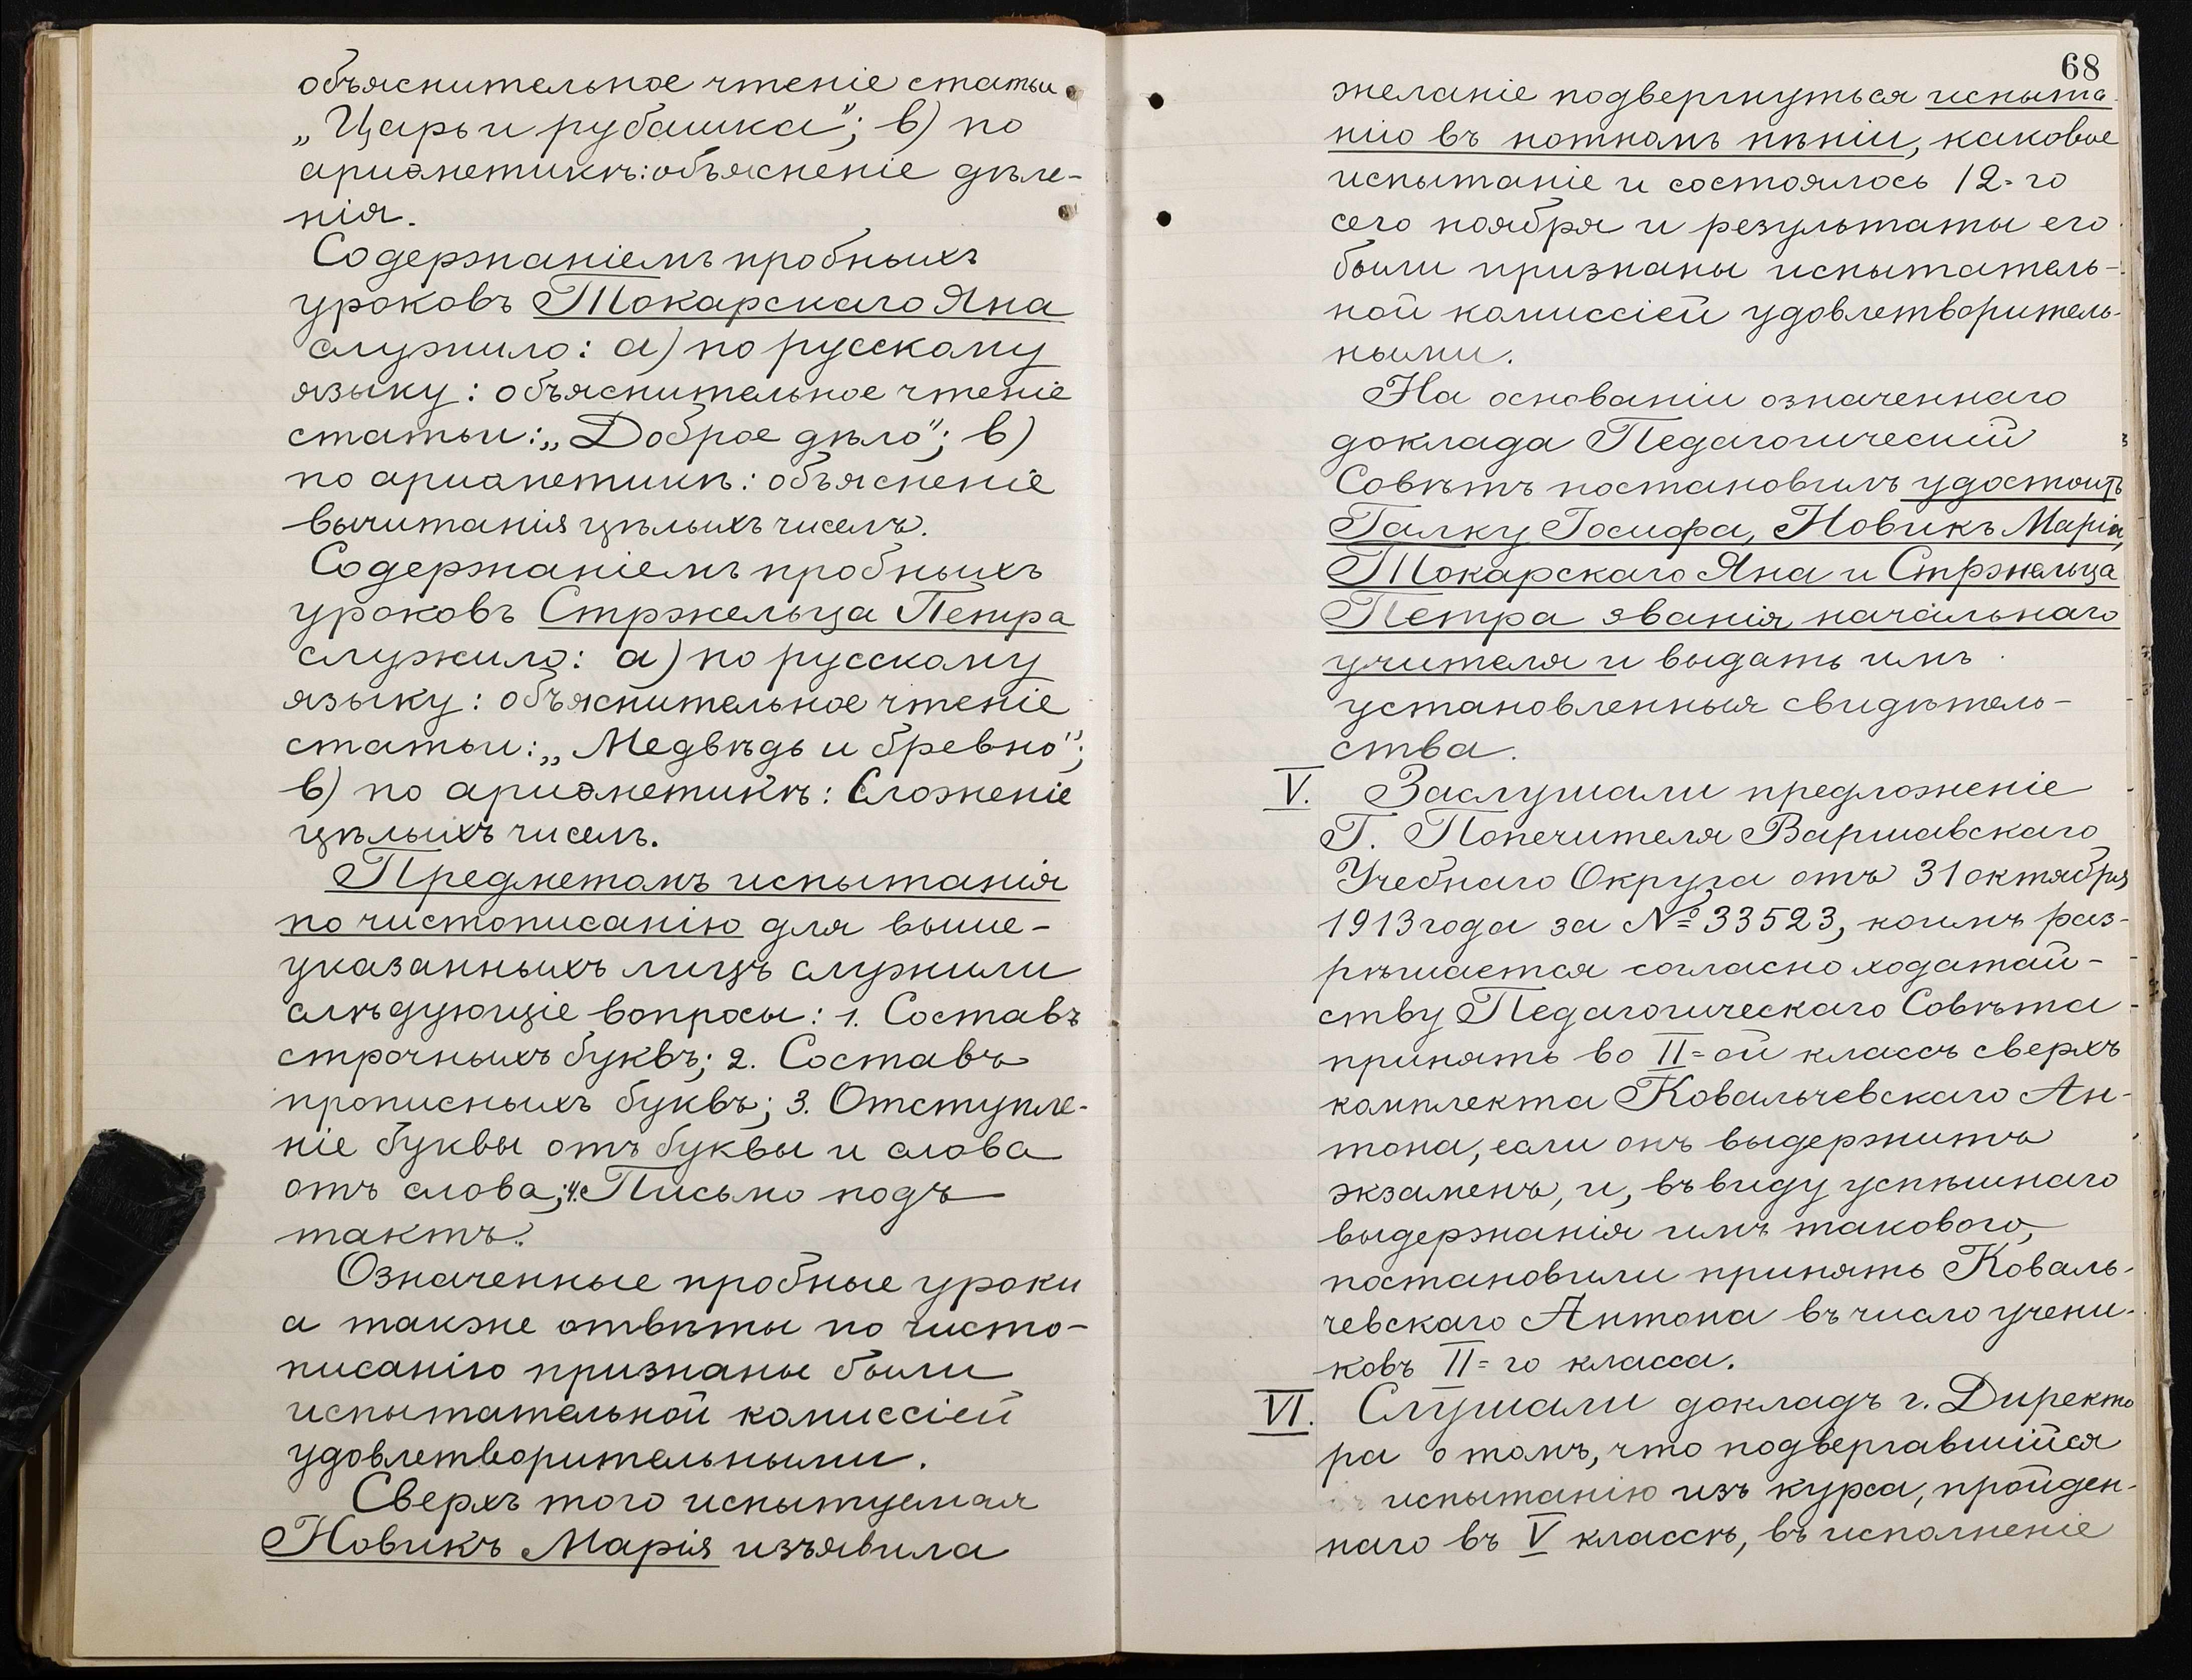 объяснительное чтеніе статьи
„Царь и рубашка"; в) по
ариѳметикѣ: объясненіе дѣле-
нія.
Содержаніемъ пробныхъ
уроковъ Токарскаго Яна
служило: а) по русскому
языку: объяснительное чтеніе
статьи: „Доброе дѣло"; в)
по ариѳметикѣ: объясненіе
вычитанія цѣлыхъ чиселъ.
Содержаніемъ пробныхъ
уроковъ Стржельца Петра
служило: а) по русскому
языку: объяснительное чтеніе
статьи: „Медвѣдь и бревно";
в) по ариѳметикѣ: Сложеніе
цѣлыхъ чиселъ.
Предметомъ испытанія
по чистописанію для выше-
указанныхъ лицъ служили
слѣдующіе вопросы: 1. Составъ
строчныхъ буквъ; 2. Составъ
прописныхъ буквъ; 3. Отступле-
ніе буквы отъ буквы и слова
отъ слова; 4. Письмо подъ
тактъ.
Означенные пробные уроки
а также отвѣты по чисто-
писанію признаны были
испытательной комиссіей
удовлетворительными.
Сверхъ того испытуемая
Новикъ Марія изъявила
68
желаніе подвергнуться испыта-
нію въ нотномъ пѣніи, каковое
испытаніе и состоялось 12-го
сего ноября и результаты его
были признаны испытатель-
ной комиссіей удовлетворитель-
ными.
На основаніи означеннаго
доклада Педагогическій
Совѣтъ постановилъ удостоить
Галку Іосифа, Новикъ Марію,
Токарскаго Яна и Стржельца
Петра званія начальнаго
учителя и выдать имъ
установленныя свидѣтель-
ства.
V. Заслушали предложеніе
Г. Попечителя Варшавскаго
Учебнаго Округа отъ 31 октября
1913 года за № 33523, коимъ раз-
рѣшается согласно ходатай-
ству Педагогическаго Совѣта
принять во II-ой классъ сверхъ
комплекта Ковальчевскаго Ан-
тона, если онъ выдержитъ
экзаменъ, и, въ виду успѣшнаго
выдержанія имъ такового,
постановили принять Коваль-
чевскаго Антона въ число учени-
ковъ II-го класса.
VI. Слушали докладъ г. Директо
ра о томъ, что подвергавшійся
испытанію изъ курса, пройден-
наго въ V классѣ, въ исполненіе